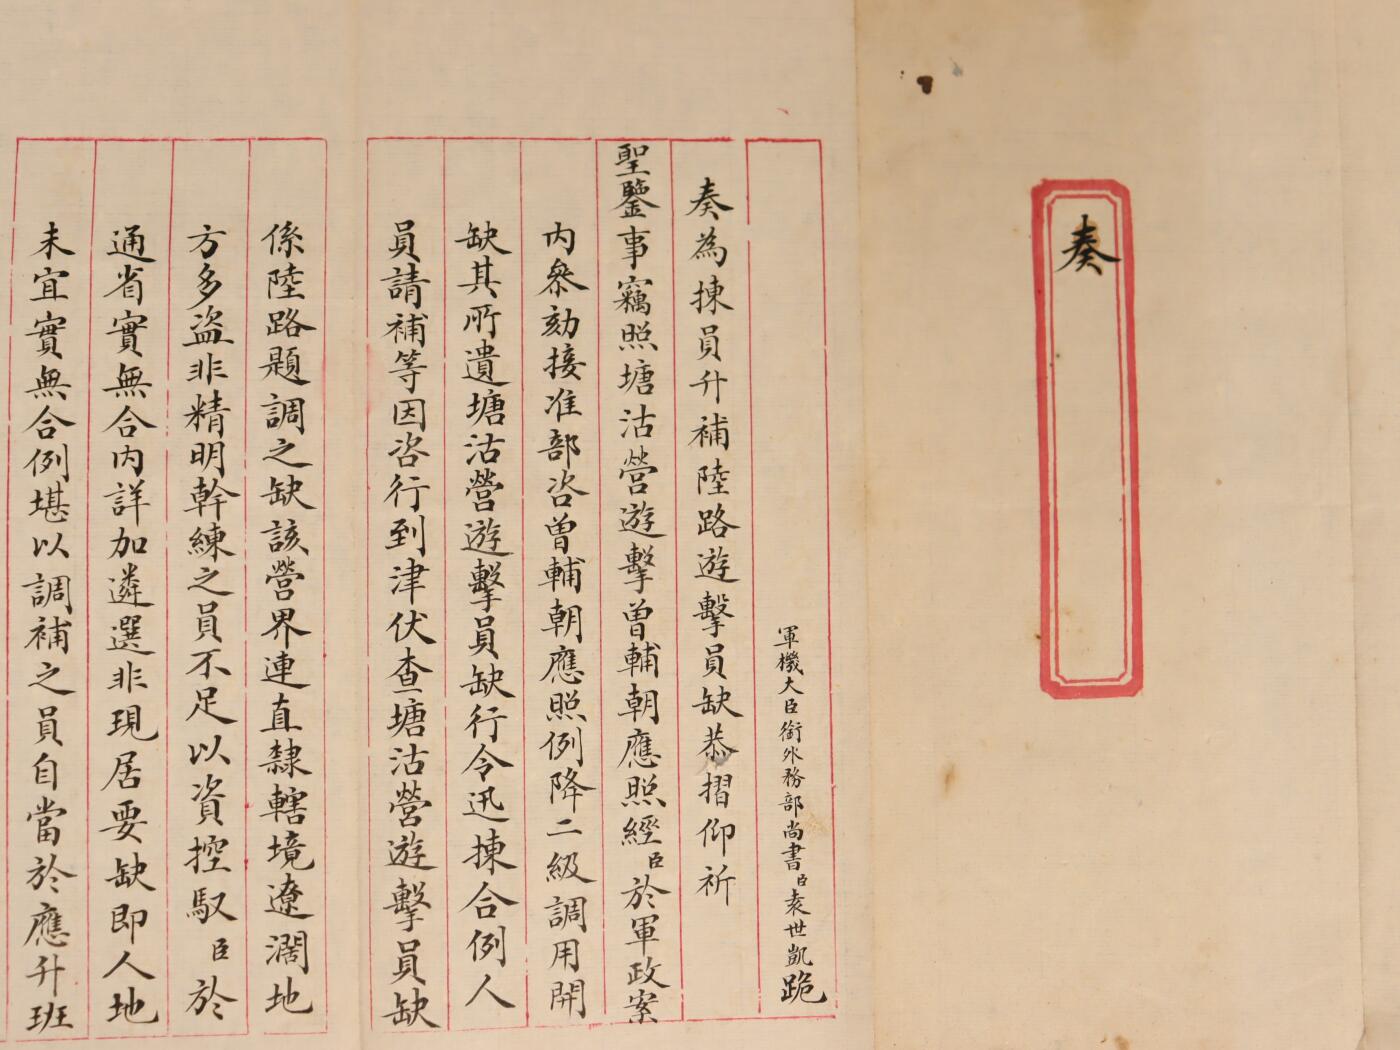 奏
軍機大臣銜外務部尚書臣袁世凱跪
奏為揀員升補陸路遊擊員缺恭摺仰祈
聖鑒事竊照塘沽營遊擊曾輔朝應照經臣於軍政案
内叅劾接准部咨曾輔朝應照例降二級調用開
缺其所遺塘沽營遊擊員缺行令迅揀合例人
員請補等因咨行到津伏查塘沽營遊擊員缺
係陸路題調之缺該營界連直隸轄境遼濶地
方多盗非精明幹練之員不足以資控馭臣於
通省實無合内詳加遴選非現居要缺即人地
未宜實無合例堪以調補之員自當於應升班